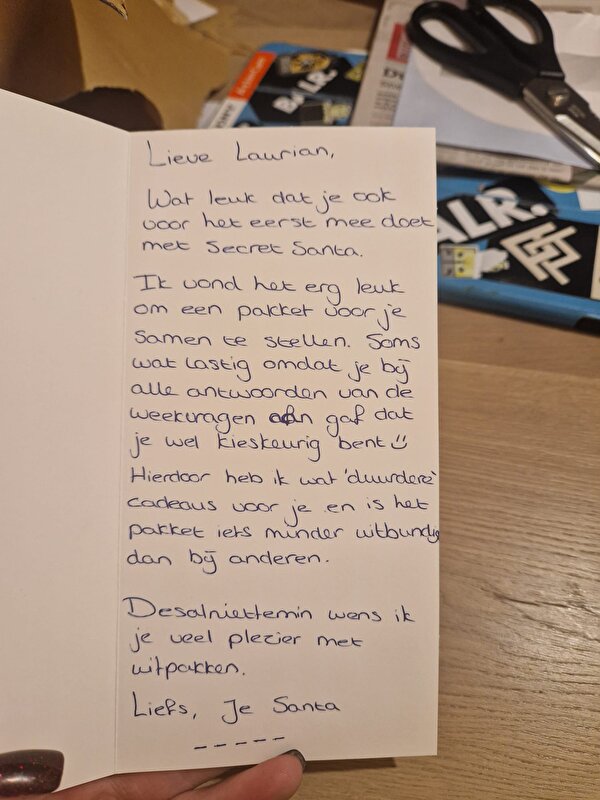 BALR.
ALR.
Lieve Laurian,
Wat leuk dat je ook
voor het eerst mee doet
met Secret Santa.
Ik vond het erg leuk
om een pakket voor je
samen te stellen. Soms
wat lastig omdat je bij
alle antwoorden van de
weekvragen aan gaf dat
je wel kieskeurig bent
Hierdoor heb ik wat 'duurdere'
cadeaus voor je en is het
pakket iets minder uitbundig
dan bij anderen.
Desalniettemin wens ik
je veel plezier met
uitpakken.
Liefs, Je Santa